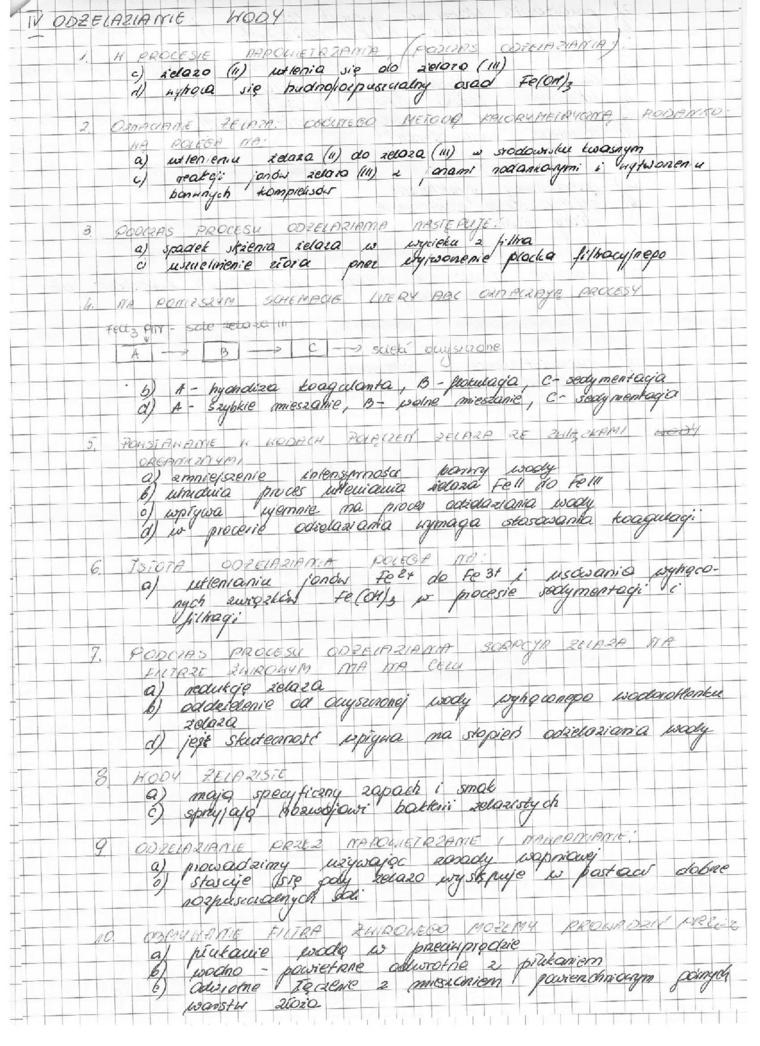 IV ODŻELAZIANIE WODY
1. W PROCESIE NAPOWIETRZANIA (PODCZAS ODŻELAZIANIA)
c) żelazo (II) utlenia się do żelaza (III)
d) wytrąca się trudnorozpuszczalny osad Fe(OH)3
2. OZNACZANIE ŻELAZA OGÓLNEGO METODĄ KOLORYMETRYCZNĄ RODANKO-
WĄ POLEGA NA:
a) utlenieniu żelaza (II) do żelaza (III) w środowisku kwaśnym
c) reakcji jonów żelaza (III) z jonami rodankowymi i wytworzeniu
barwnych kompleksów
3. PODCZAS PROCESU ODŻELAZIANIA NASTĘPUJE:
a) spadek stężenia żelaza w wycieku z filtra
c) uszczelnienie złoża przez wytworzenie placka filtracyjnego
4. NA PONIŻSZYM SCHEMACIE LITERY ABC OZNACZAJĄ PROCESY
FeCl3 - sole żelaza III
A → B → C → ścieki oczyszczone
b) A - hydroliza koagulanta, B - flokulacja, C - sedymentacja
d) A - szybkie mieszanie, B - wolne mieszanie, C - sedymentacja
5. POWSTAWANIE W WODACH POŁĄCZEŃ ŻELAZA ZE ZWIĄZKAMI
ORGANICZNYMI
a) zmniejszenie intensywności barwy wody
b) utrudnia proces utleniania żelaza FeII do FeIII
c) wpływa ujemnie na proces odżelaziania wody
d) w procesie odżelaziania wymaga stosowania koagulacji
6. ISTOTA ODŻELAZIANIA POLEGA NA:
a) utlenianiu jonów Fe2+ do Fe3+ i usówania wytrąco-
nych związków Fe(OH)3 w procesie sedymentacji i
filtracji
7. PODCZAS PROCESU ODŻELAZIANIA SORPCJA ŻELAZA NA
FILTRZE ŻWIROWYM MA NA CELU
a) redukcję żelaza
b) oddzielenie od oczyszczonej wody wytrąconego wodorotlenku
żelaza
d) jej skuteczność wpływa na stopień odżelaziania wody
8. WODY ŻELAZISTE
a) mają specyficzny zapach i smak
c) sprzyjają rozwojowi bakterii żelazistych
9. ODŻELAZIANIE PRZEZ NAPOWIETRZANIE I NAWAPNIANIE:
a) prowadzimy używając zasady wapniowej
b) stosuje się gdy żelazo występuje w postaci dobrze
rozpuszczalnych soli
10. ODMYWANIE FILTRA ŻWIROWEGO MOŻEMY PROWADZIĆ PRZEZ
a) płukanie wodą w przeciwprądzie
b) wodno - powietrzne odwrotne z płukaniem
c) odwrotne łączenie z mieszaniem powierzchniowym górnych
warstw złoża